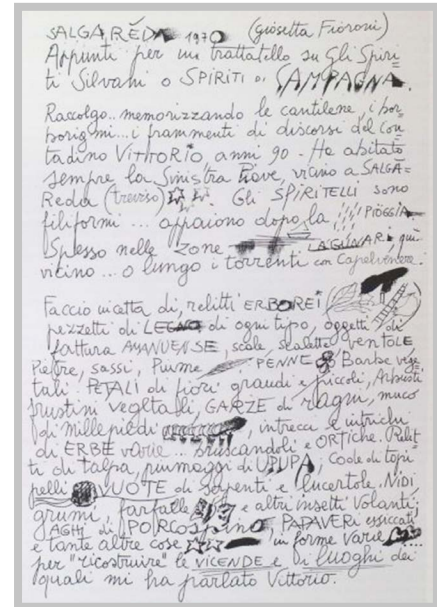 SALGARĒDA 1970 (giosetta Fioroni)
Appunti per un trattatello su Gli Spiri=
ti Silvani o SPIRITI DI CAMPAGNA.
Raccolgo.. memorizzando le cantilene, i bor=
borigmi... i frammenti di discorsi del con=
tadino VITTORIO, anni 90 - Ha abitato
sempre la Sinistra Piave, vicino a SALGĀ=
Reda (treviso) Gli SPIRITELLI sono
filiformi ... appaiono dopo la PIOGGIA
Spesso nelle zone LAGUNARI qui
vicino ... o lungo i torrenti con Capelvenere.
Faccio incetta di, relitti ERBOREI
pezzetti di LEGNO di ogni tipo, oggetti di
fattura AMANUENSE, scale, scalette, ventole
Pietre, sassi, Piume PENNE Barbe vege
tali PETALI di fiori grandi e piccoli, Arbusti
frustini vegetali, GARZE di ragni, muco
di millepiedi, intrecci e intrichi
di ERBE varie ... bruscandoli e ORTiche.
ti di talpa, piumaggi di UPUPA, Code di topi
pelli VUOTE di serpenti e lucertole. NIDI
grumi, farfalle e altri insetti Volanti,
AGHI di PORCOSpino PAPAVERi essiccati
e tante altre cose in forme varie
per "ricostruire" le VICENDE e i luoghi dei
quali mi ha parlato Vittorio.